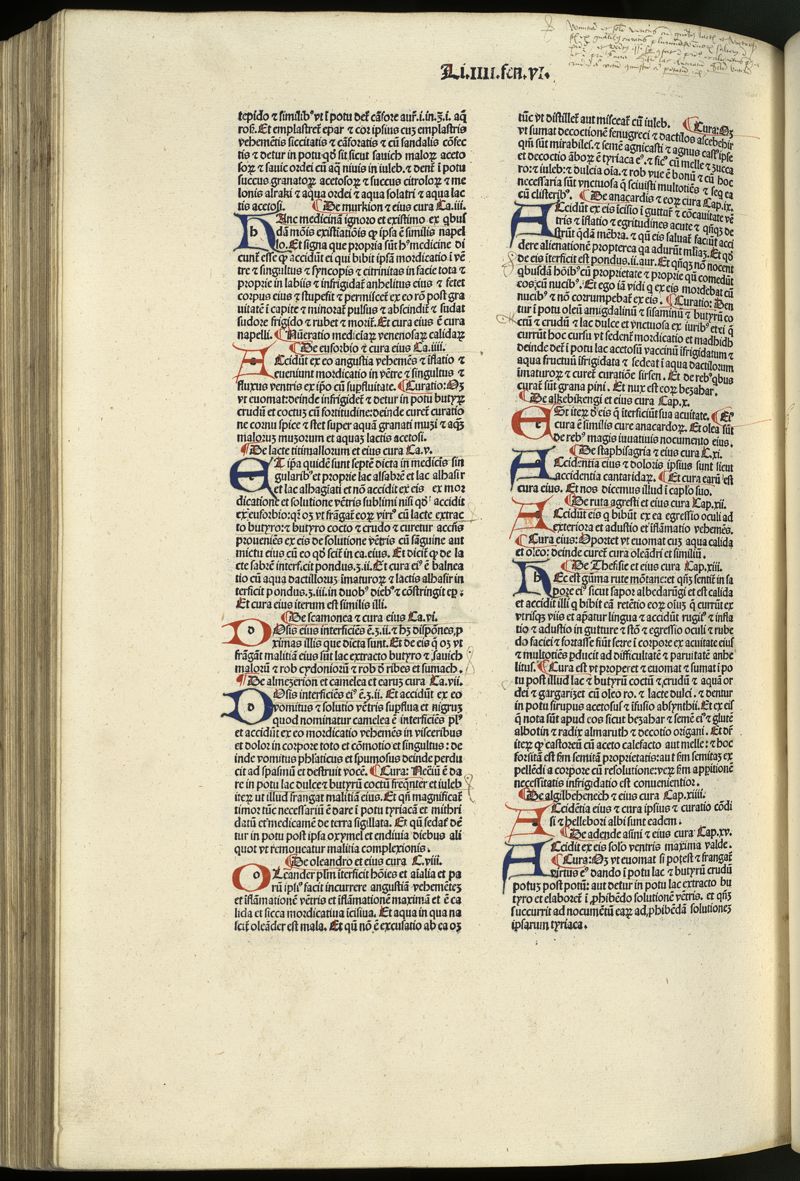 Li.IIII.fen.VI.
tepido ⁊ similibꝰ vt i potu det᷑ cãfore aur̃.i.in.ʒ.i. aq̃
ros̃. Et emplastret᷑ epar ⁊ cor ipsius cuʒ emplastris
vehemẽtis siccitatis ⁊ cãforatis ⁊ cũ sandalis cõfec
tis ⁊ detur in potu qð sit sicut sauich maloꝝ aceto
soꝝ ⁊ sauic ordei cũ aq̃ niuis in iuleb. ⁊ dent᷑ i potu
succus granatoꝝ acetosoꝝ ⁊ succus citroloꝝ ⁊ me
lonis alraki ⁊ aqua ordei ⁊ aqua solatri ⁊ aqua lac
tis acetosi. ¶ De murkion ⁊ eius cura Ca.iii.
hAnc medicinã ignoro ⁊ existimo ex qbus
dã mõis existiatiõis ꝙ ipsa ẽ similis napel
lo. Et signa que propria sũt hꝰ medicine di
cunt᷑ esse ꝙ accidũt ei qui bibit ipsã mordicatio i vẽ
tre ⁊ singultus ⁊ syncopis ⁊ citrinitas in facie tota ⁊
proprie in labiis ⁊ infrigidat᷑ anhelitus eius ⁊ fetet
corpus eius ⁊ stupefit ⁊ permiscet᷑ ex eo rõ post gra
uitatẽ i capite ⁊ minorat᷑ pulsus ⁊ abscindit᷑ ⁊ sudat
sudore frigido ⁊ rubet ⁊ morit᷑. Et cura eius ẽ cura
napelli. ¶ Nũeratio mediciaꝝ venenosaꝝ calidaꝝ
¶ De euforbio ⁊ cura eius Ca.iiii.
ACcidũt ex eo angustia vehemẽs ⁊ iflatio ⁊
eueniunt mordicatio in vẽtre ⁊ singultus ⁊
fluxus ventris ex ip̃o cũ supfluitate. ¶ Curatio: Oʒ
vt euomat: deinde infrigidet᷑ ⁊ detur in potu butyꝝ
crudũ ⁊ coctuʒ cũ fortitudine: deinde curet᷑ curatio
ne cornu spice ⁊ stet super aquã granati muʒi ⁊ aq̃ʒ
maloruʒ muʒorum ⁊ aquaʒ lactis acetosi.
¶ De lacte titimallorum et eius cura Ca.v.
ET ipa quidẽ sunt septẽ dicta in medicĩs sin
gularibꝰ et proprie lac alsabrẽ et lac alhasir
et lac alhagiati et nõ accidit ex eis ex mor
dicatione et solutione vẽtris sublimi nisi qðꝰ accidit
ex euforbio: qr̃ oʒ vt frãgat᷑ eoꝝ virtꝰ cũ lacte extrac
to butyro: ⁊ butyro cocto ⁊ crudo ⁊ curetur accñs
proueniẽs ex eis de solutione vẽtris cũ sãguine aut
mictu eius cũ eo qð scit᷑ in ea.eius. Et dicit᷑ ꝙ de la
cte sabrẽ intersficit pondus.ʒ.ii. Et cura eiꝰ ẽ balnea
tio cũ aqua dactilloruʒ ĩmaturoꝝ ⁊ lactis alhasir in
terficit pondus.ʒ.iii.in duobꝰ diebꝰ ⁊ cõstringit eꝑ.
Et cura eius iterum est similis illi.
¶ De scamonea ⁊ cura eius Ca.vi.
DOsis eius interficiẽs ẽ.ʒ.ii. ⁊ hʒ dispõnes.p
ximas illis que dicta sunt. Et de eis q̃ oʒ vt
frãgant malitiã eius sũt lac extracto butyro ⁊ sauich
malorũ ⁊ rob cydoniorũ ⁊ rob d̃ ribes et sumach.
¶ De almeʒerion et camelea et earuʒ cura Ca.vii.
DOsis interficiẽs eiꝰ ẽ.ʒ.ii. Et accidũt ex eo
vomitus ⁊ solutio vẽtris supflua et nigruʒ
quod nominatur camelea ẽ interficiẽs plꝰ
et accidũt ex eo mordicatio vehemẽs in visceribus
et dolor in corpore toto et cõmotio et singultus: de
inde vomitus phlaticus et spumosus deinde perdu
cit ad spasmũ et destruit vocẽ. ¶ Cura: Neciũ ẽ da
re in potu lac dulce ⁊ butyrũ coctũ freq̃nter et iuleb
iteꝝ ut illud frangat malitiã eius. Et qñ magnificat᷑
timor tũc necessariũ ẽ dare i potu tyriacã et mithri
datũ et medicamẽ de terra sigillata. Et qñ sedat᷑ dẽ
tur in potu post ipsa oxymel et endiuia diebus ali
quot vt remoueatur malitia complexionis.
¶ De oleandro et eius cura C.viii.
OLeander plm̃ iterficit hõies et aĩalia et pa
rũ ip̃iꝰ facit incurrere angustiã vehemẽteʒ
et ĩflamationẽ vẽtris et ĩflamationẽ maximã et ẽ ca
lida et sicca mordicatiua icisiua. Et aqua in qua na
scit᷑ oleãder est mala. Et qñ nõ ẽ excusatio ab ea oʒ
tũc vt distillet᷑ aut misceat᷑ cũ iuleb. ¶ Cura: Oʒ
vt sumat decoctionẽ fenugreci ⁊ dactilos ascebehir
qm̃ sũt mirabiles. ⁊ semẽ agnicasti ⁊ agnus castꝰ ipse
et decoctio ãboꝝ ẽ tyriaca eꝰ. ⁊ ficꝰ cũ melle ⁊ ʒucca
ro: ⁊ iuleb: ⁊ dulcia oĩa. ⁊ rob vue ẽ bonũ ⁊ cũ hoc
necessaria sũt vnctuosa q̃ sciuisti multotiẽs ⁊ seq̃ ea
cũ clisteribꝰ. ¶ De anacardis ⁊ eoꝝ cura Cap.ix.
ACcidũt ex eis icisio i gutturẽ ⁊ cõcauitate vẽ
tris ⁊ iflatio ⁊ egritudines acute ⁊ qñqʒ de
struũt qdã mẽbra. ⁊ qñ eis saluat᷑ faciũt acci
dere alienationẽ propterea qa adurũt mĩiaʒ. Et qð
de eis iterficit est pondus.ii.aur. Et qñqʒ nõ nocent
qbusdã hoĩbꝰ cũ proprietate ⁊ proprie qñ comedũt
eos cũ nucibꝰ. Et ego iã vidi q ex eis mordebat cũ
nucibꝰ ⁊ nõ corrumpebat᷑ ex eis. ¶ Curatio: Den
tur i potu oleũ amigdalinũ ⁊ sisaminũ ⁊ butyrũ co
ctũ ⁊ crudũ ⁊ lac dulce et vnctuosa ex iuribꝰ et vi q̃
currũt hoc cursu vt sedent᷑ mordicatio et madidhb
deinde det᷑ i potu lac acetosũ vaccinũ ĩfrigidatum ⁊
aqua fructuũ ĩfrigidata ⁊ sedeat i aqua dactilorum
ĩmaturoꝝ ⁊ curet᷑ curatiõe sirsen. Et de rebꝰ qbus
curat᷑ sũt grana pini. Et nux est eoꝝ beʒahar.
¶ De alkehikengi et eius cura Cap.x.
ESt iteꝝ d̃ eis q̃ iterficiũt sua acuitate. ¶ Eiꝰ
cura ẽ similis cure anacardoꝝ. Et olea sũt
de rebꝰ magis iuuatiuis nocumento eius.
¶ De staphisagria et eius cura C.xi.
ACcidẽtia eius ⁊ doloris ipsius sunt sicut
accidentia cantaridaꝝ. ¶ Et cura earũ est
cura eius. Et nos dicemus illud i cap̃lo suo.
¶ De ruta agresti et eius cura Cap.xii.
ACcidũt eis q̃ bibũt ex ea egressio oculi ad
exteriora et adustio et ĩflamatio vehemẽs.
¶ Cura eius: Oportet vt euomat cuʒ aqua calida
et oleo: deinde curet᷑ cura oleãdri et similiũ.
¶ De Thefsie et eius cura Cap.xiii.
hEc est gũma rute mõtane: et qñ sentit᷑ in sa
pore eiꝰ sicut sapor albedarũgi et est calida
et accidit illi q bibit eã retẽtio eoꝝ oĩuʒ q̃ currũt ex
vtrisqʒ viis et apãtur lingua ⁊ accidũt rugitꝰ ⁊ ifla
tio ⁊ adustio in gutture ⁊ stõ ⁊ egressio oculi ⁊ rube
do faciei ⁊ fortasse sũt ferre i corpore ex acuitate eius
⁊ multotiẽs pducit ad difficultatẽ ⁊ paruitatẽ anhe
litus. ¶ Cura est vt properet ⁊ euomat ⁊ sumat i po
tu post illud lac ⁊ butyrũ coctũ ⁊ crudũ ⁊ aquã or
dei ⁊ gargariʒet cũ oleo ro. ⁊ lacte dulci. ⁊ dentur
in potu sirupus acetosus ⁊ ifusio absynthii. Et ex eis
q̃ nota sũt apud eos sicut beʒahar ⁊ semẽ eiꝰ ⁊ glutẽ
albotin ⁊ radix almaruth ⁊ decotio origani. Et dr̃
iteꝝ ꝙ castoreũ cũ aceto calefacto aut melle: ⁊ hoc
forsitã est fm̃ semitã proprietatis: aut fm̃ semitaʒ ex
pellẽdi a corpore cũ resolutione: veꝝ fm̃ appitionẽ
necessitatis infrigidatio est conuenientior.
¶ De algilbehench ⁊ eius cura Cap.xiiii.
ACcidẽtia eius ⁊ cura ipsius ⁊ curatio cõdi
si ⁊ hellebori albi sunt eadem.
¶ De adende asini ⁊ eius cura Cap.xv.
ACcidit ex eis solo ventris maxima valde.
¶ Cura: Oʒ vt euomat si potest ⁊ frangat᷑
virtus eiꝰ dando i potu lac ⁊ butyrũ crudũ
potuʒ post potũ: aut detur in potu lac extracto bu
tyro et elaboret᷑ i phibẽdo solutionẽ vẽtris. et qñqʒ
succurrit ad nocumẽtũ eaꝝ ad phibẽdã solutionem
ipsarum tyriaca.